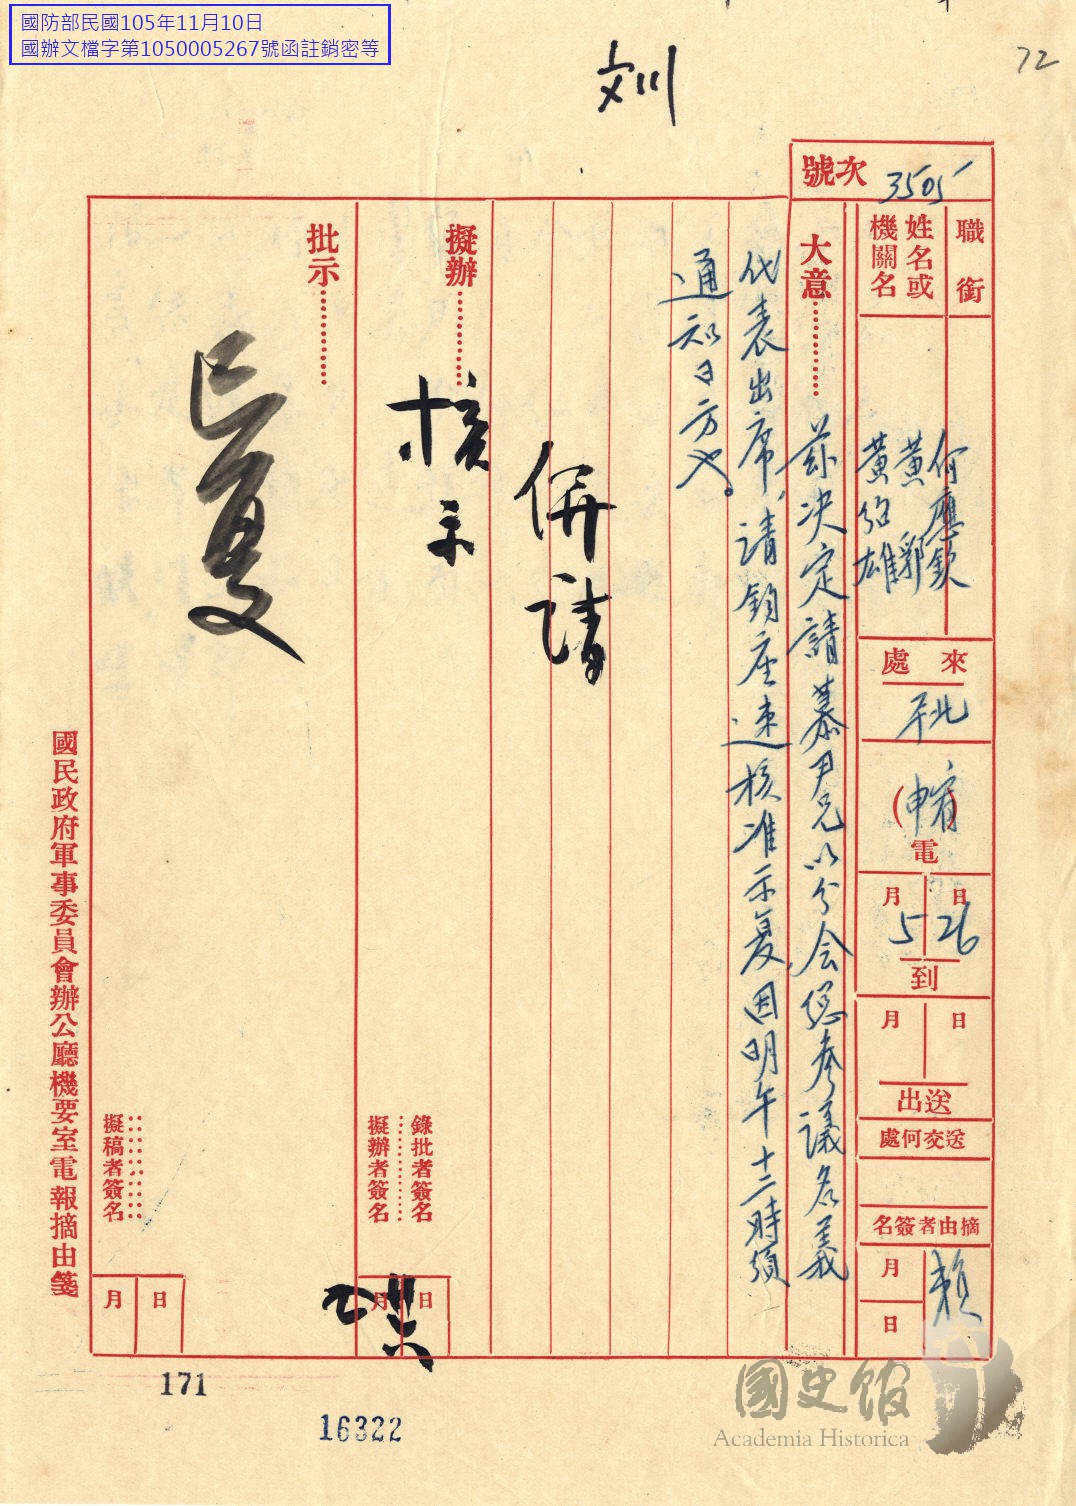 國防部民國105年11月10日
國辦文檔字第1050005267號函註銷密等
72
号次 3505
職銜
姓名或
機關名
何應欽
黃郛
黃紹雄
來處
北平
(申宥)電
月 日
5 26
到
月 日
送出
送交何處
摘由者簽名
賴
月
日
大意…………
茲決定請慕尹兄以分会總參議名義
代表出席,請鈞座速核准示复,因明午十二時須
通知日方也。
擬辦…………
併請
核示
批示…………
已复
錄批者簽名
擬辦者簽名
月 日
擬稿者簽名
月 日
國民政府軍事委員會辦公廳機要室電報摘由箋
171
16322
國史館
Academia Historica